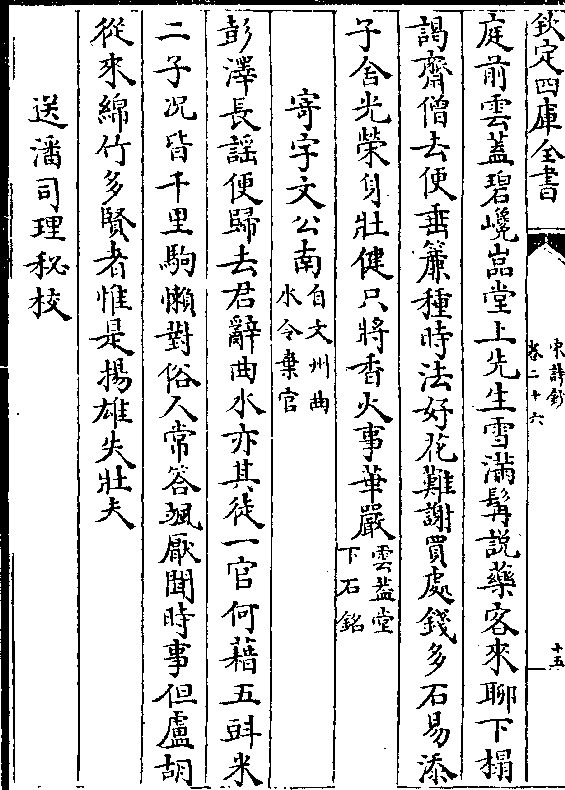 欽定四庫全書
宋詩鈔
卷二十六
十五
庭前雲蓋碧巉嵓堂上先生雪滿髯説藥客來聊下榻
謁齋僧去便垂簾種時法好花難謝買處錢多石易添
子舍光榮身壯健只將香火事華嚴雲葢堂下石銘
寄宇文公南自文州曲水令棄官
彭澤長謡便歸去君辭曲水亦其徒一官何藉五㪷米
二子况皆千里駒懶對俗人常答颯厭聞時事但盧胡
從來綿竹多賢者惟是揚雄失壯夫
送潘司理秘校